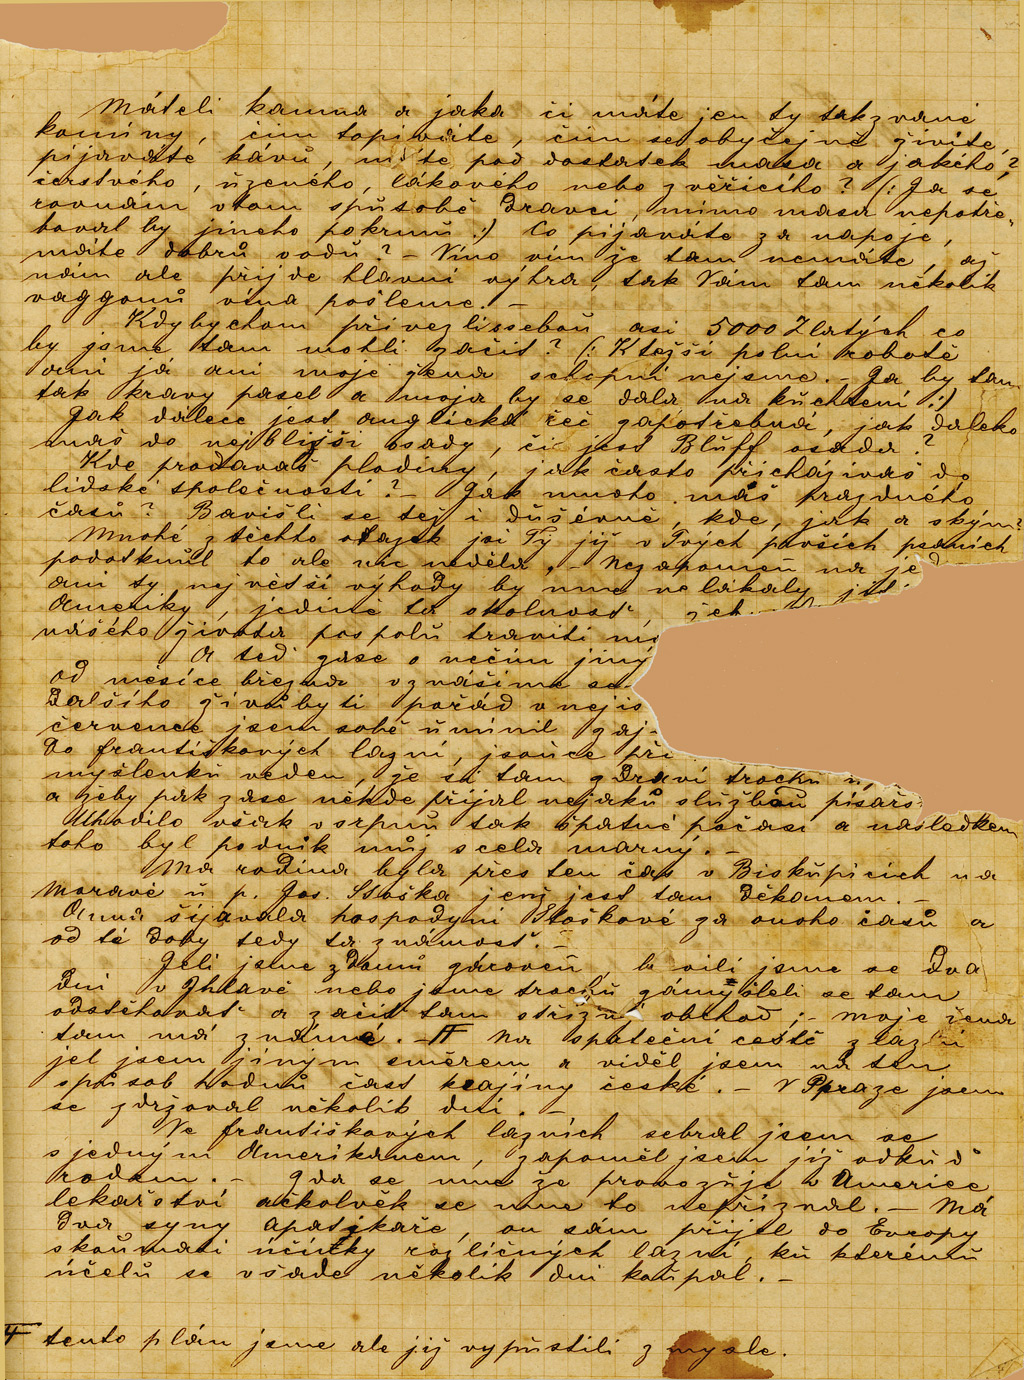 Máteli kamna a jaka či máte jen ty takzvané
komíny, čím topiváte, čím se obyčejně živíte,
píjaváte kávu, máte pod dostatek masa a jakého?
čerstvého, uzeného, lákového nebo zvěřicího? (: Ja se
rovnám vtom spůsobě dravci, mimo masa nepotře-
boval by jineho pokrmu :) Co pijaváte za napoje,
máte dobrů vodů? – Víno vím že tam nemáte, až
nám ale přijde hlavní výhra, tak Vám tam několik
vaggonů vína pošleme. –
Kdybychom přivezli ssebou asi 5000 Zlatých co
by jsme tam mohli začít? (: Ktežší polní robotě
ani já ani moje žena schopní nejsme. – Ja by tam
tak kravy pasel a moja by se dala na kuchtění :)
Jak dalece jest anglická řeč zapotřebná, jak daleko
máš do nejbližší osady, či jest Bluff osada?
Kde prodavaš plodiny, jak často přicházivaš do
lidské společnosti? – Jak mnoho máš prazdného
času? Bavišli se též i duševně, kde, jak a ským?
Mnohé z těchto otazek jsi Ty již v Tvých prvších psaních
podotknul to ale nic nedělá. – Nezapomeň na
ani ty největší výhody by mne nelákaly
Ameriky, jedině ta okolnost,
našého života pospolu traviti
A teď zase o nečím jiný
od měsíce března vznášíme se
Dalšího živobyti pořád v nejis
července jsem sobě umínil zaj-
do františkových lazní, jsouce při
myšlenku veden, že si tam zdraví trochu
a žeby pak zase někde přijal nejaků službu písařs
Uhodilo však v srpnu tak špatné počasí a následkem
toho byl podnik můj scela marný. –
Ma rodina byla přes ten čas v Biskupicích na
Moravě u p. Jos. Stoška jenž jest tam děkanem. –
Anna šijavala hospodyni Stoškové za onoho času a
od té doby tedy ta známost. –
Jeli jsme z domů zároveň, bavili jsme se dva
dni v Jhlavě nebo jsme trochu zámýšleli se tam
odstěhovat a začít tam střižní obchod; – moje žena
tam má známé. – # Na spáteční cestě z lazní
jel jsem jiným směrem a viděl jsem na ten
spůsob hodnů část krajiny české. – V Praze jsem
se zdržoval několik dní. –
Ve františkových lazních sebral jsem se
s jedným Amerikanem, zapoměl jsem již odkud
rodem. – Zda se mne že provozuje v Americe
lekařství ačkolvěk se mne to nepříznal. – Má
dva syny apatikaře, on sám přijel do Evropy
skoumati účinky rozličných lazní, ku kterému
účelu se všade několik dni koupal. –
# tento plán jsme ale již vypustili z mysle.